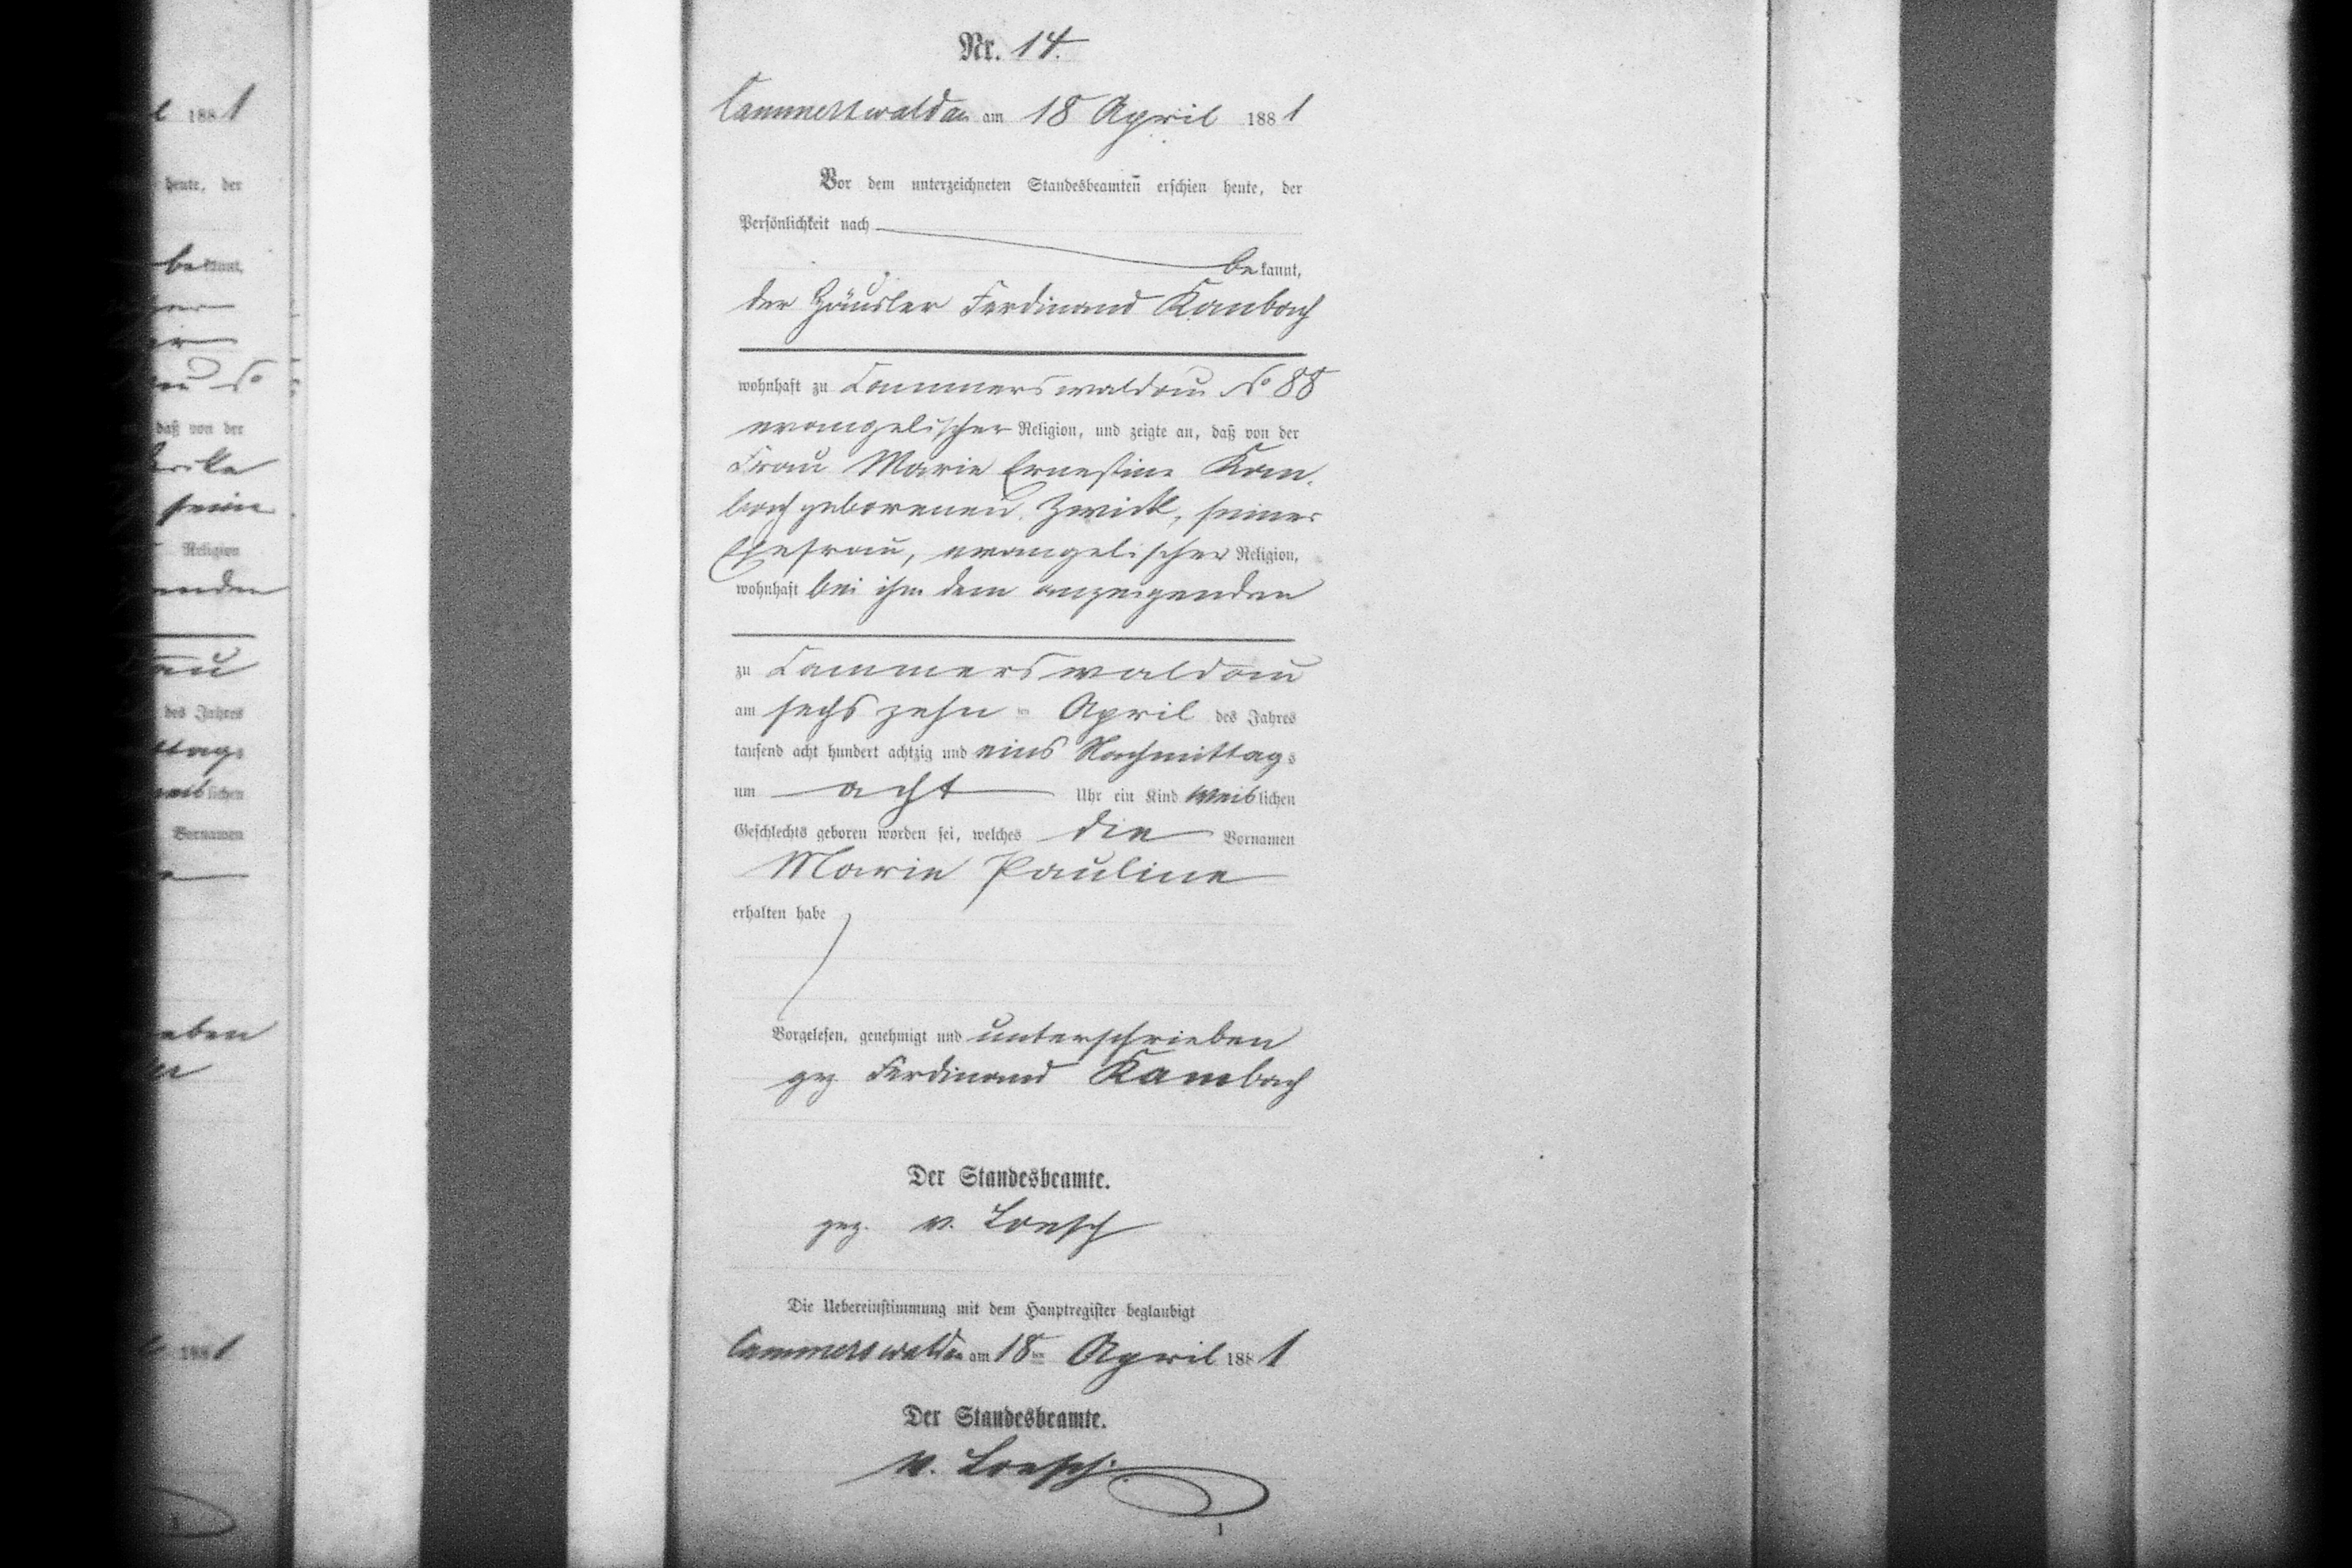 Nr. 14.
Cammerswaldau am 18 April 1881
Vor dem unterzeichneten Standesbeamten erschien heute, der
Persönlichkeit nach
bekannt,
der Häusler Ferdinand Kambach
wohnhaft zu Cammerswaldau No 88
evangelischer Religion, und zeigte an, daß von der
Frau Marie Ernestine Kam-
bach geborenen Zwick, seiner
Ehefrau, evangelischer Religion,
wohnhaft bei ihm dem anzeigenden
zu Cammerswaldau
am sechszehnten April des Jahres
tausend acht hundert achtzig und eins Nachmittags
um acht Uhr ein Kind weiblichen
Geschlechts geboren worden sei, welches die Vornamen
Marie Pauline
erhalten habe
Vorgelesen, genehmigt und unterschrieben
gez Ferdinand Kambach
Der Standesbeamte.
gez. v. Loesch
Die Uebereinstimmung mit dem Hauptregister beglaubigt
Cammerswaldau am 18ten April 1881
Der Standesbeamte.
v. Loesch.
1
1881
heute, der
bekannt,
No
daß von der
seine
Religion
des Jahres
lichen
Vornamen
1881